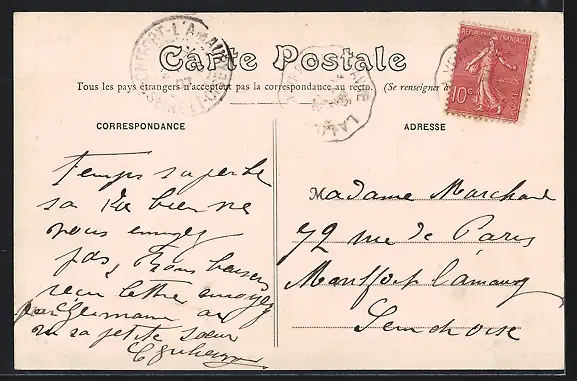 MONTFORT-L'AMAURY
Carte Postale
RÉPUBLIQUE FRANÇAISE
10c
Tous les pays étrangers n'acceptent pas la correspondance au recto. (Se renseigner à
CORRESPONDANCE
ADRESSE
Temps superbe
sa va bien ne
vous ennuyez
pas, Bons baisers
reçu lettre
par Germaine
ou sa petite sœur
Madame Marchand
72 rue de Paris
Montfort l'amaury
Seine et oise